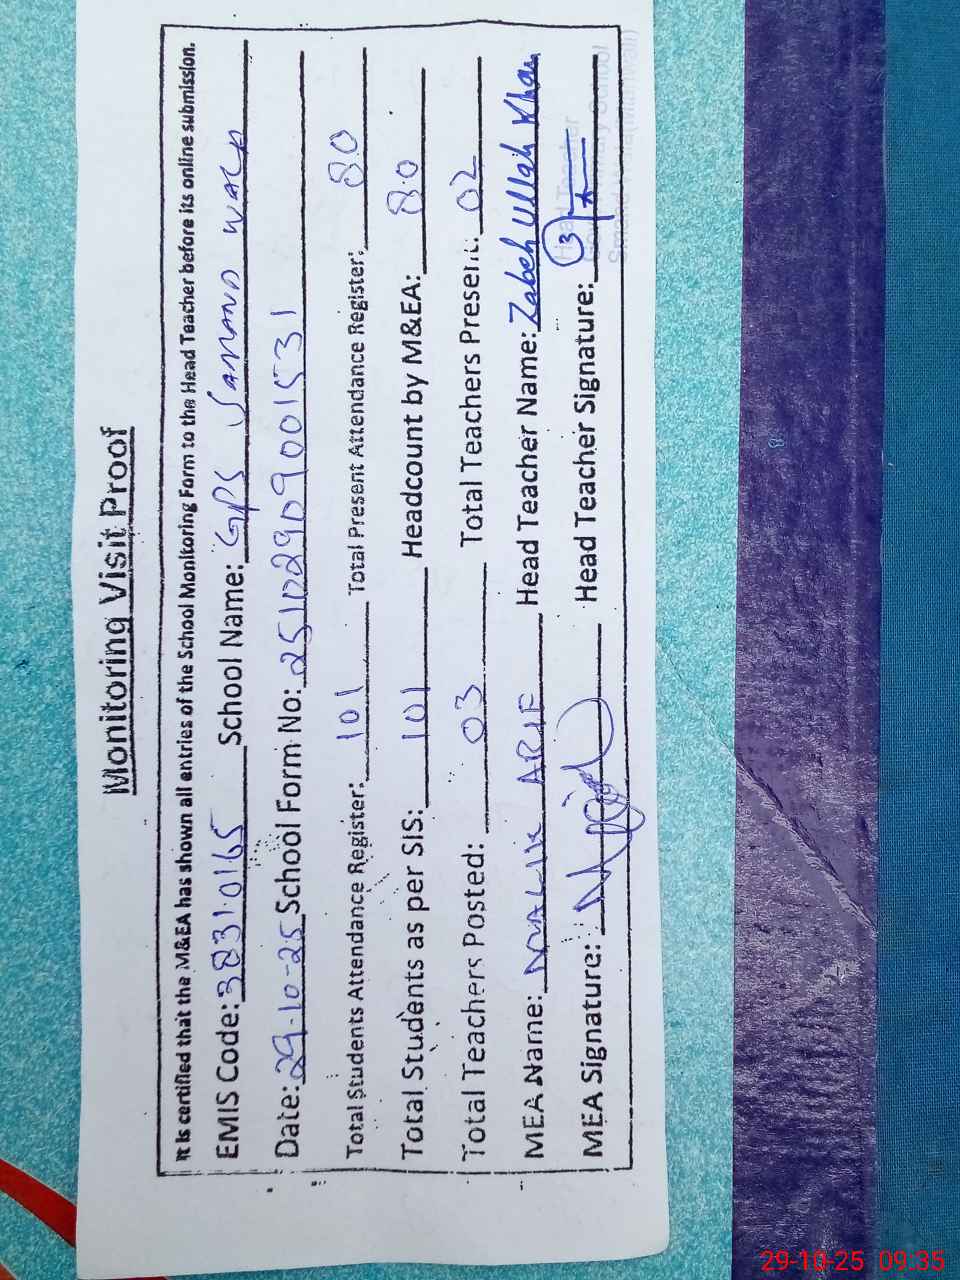 Monitoring Visit Proof
It is certified that the M&EA has shown all entries of the School Monitoring Form to the Head Teacher before its online submission.
EMIS Code: 38310165 School Name: GPS SAMAND WALA
Date: 29-10-25 School Form No: 25102909001531
Total Students Attendance Register: 101 Total Present Attendance Register: 80
Total Students as per SIS: 101 Headcount by M&EA: 80
Total Teachers Posted: 03 Total Teachers Present: 02
MEA Name: MALIK ARIF Head Teacher Name: Zabeh Ullah Khan
MEA Signature: Head Teacher Signature:
Head Teacher
Primary School
29-10-25 09:35